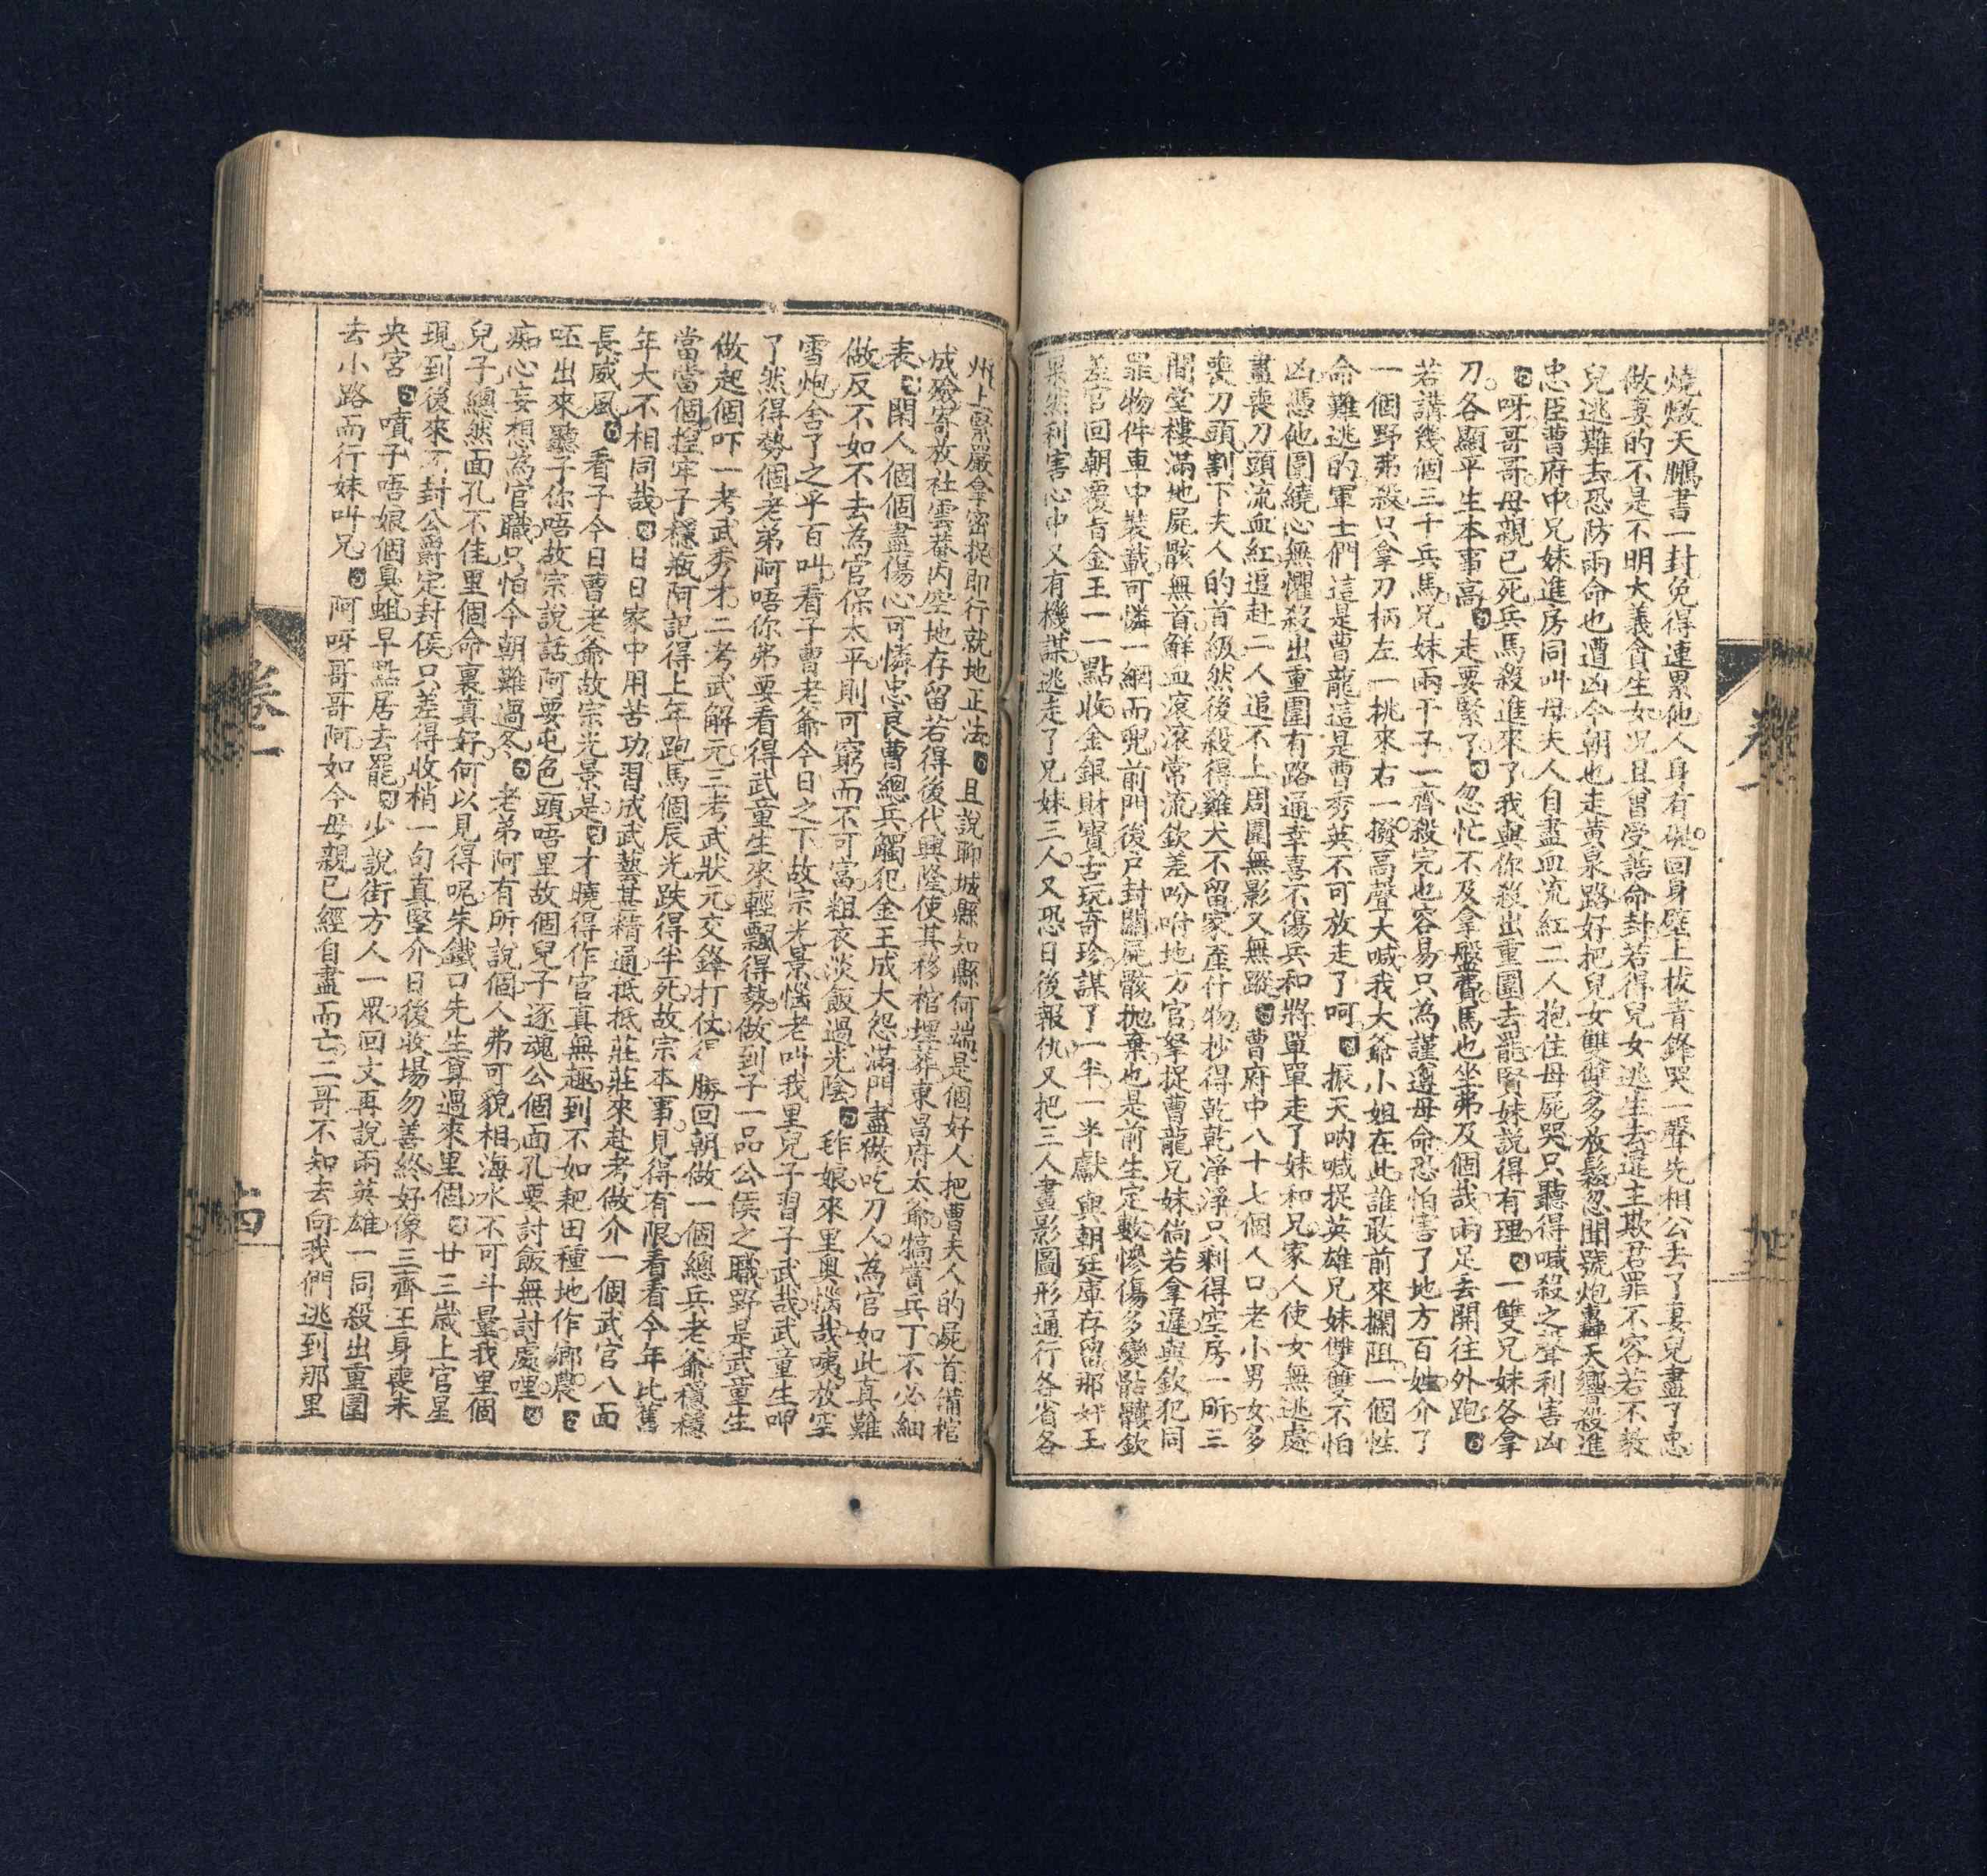 燒燬天鵬書一封免得連累他人身有礙回身壁上拔青鋒哭一聲先相公去了妻兒盡了忠
做妻的不是不明大義貪生女况且曾受誥命封若得兒女逃生去違主欺君罪不容若不教
兒逃難去恐防兩命也遭凶今朝也走黃泉路好把兒女雙雙多放鬆忽聞號炮轟天響殺進
忠臣曹府中兄妹進房同叫母夫人自盡血流紅二人抱住母屍哭只聽得喊殺之聲利害凶
呀哥哥母親已死兵馬殺進來了我與你殺出重圍去罷賢妹說得有理一雙兄妹各拿
刀各顯平生本事高走要緊了忽忙不及拿盤費馬也坐弗及個哉兩足去開往外跑
若講幾個三千兵馬兄妹兩干子一齊殺完也容易只為謹遵母命恐怕害了地方百姓介了
一個野弗殺只拿刀柄左一挑來右一撥高聲大喊我大爺小姐在此誰敢前來攔阻一個性
命難逃的軍士們這是曹龍這是曹秀英不可放走了呵振天吶喊捉英雄兄妹雙雙不怕
凶憑他圍繞心無懼殺出重圍有路通幸喜不傷兵和將單單走了妹和兄家人使女無逃處
盡喪刀頭流血紅追赴二人追不上周圍無影又無蹤曹府中八十七個人口老小男女多
喪刀頭割下夫人的首級然後殺得雞犬不留家產什物抄得乾乾淨淨只剩得空房一所三
間堂樓滿地屍骸無首鮮血滾滾常流欽差吩咐地方官拏捉曹龍兄妹倘若拿遲與欽犯同
罪物件車中裝載可憐一網而兜前門後戶封關屍骸拋棄也是前生定數慘傷多變骷髏欽
差官回朝覆旨金王一一點收金銀財寶古玩奇珍謀了一半一半獻與朝廷庫存留那奸王
果然利害心中又有機謀逃走了兄妹三人又恐日後報仇又把三人畫影圖形通行各省各
卷一
州上緊嚴拿密捉即行就地正法且說聊城縣知縣何端是個好人把曹夫人的屍首備棺
成殮寄放社雲菴內空地存留若得後代興隆使其移棺埋葬東昌府太爺犒賞兵丁不必細
表閑人個個盡傷心可憐忠良曹總兵觸犯金王成大怨滿門盡做吃刀人為官如此真難
做反不如不去為官保太平則可窮而不可富粗衣淡飯過光陰咋娘來里奧惱哉咦放空
雪炮舍了之乎百叫看子曹老爺今日之下故宗光景惱老叫我里兒子習子武哉武童生呷
了然得勢個老弟阿唔你弗要看得武童生來輕飄得勢做到子一品公侯之職野是武童生
做起個吓一考武秀才二考武解元三考武狀元交鋒打仗得勝回朝做一個總兵老爺穩穩
當當個捏牢子穩瓶阿記得上年跑馬個辰光跌得半死故宗本事見得有限看看今年比舊
年大不相同哉日日家中用苦功習成武藝甚精通抵抵莊莊來赴考做介一個武官八面
長威風看子今日曹老爺故宗光景是才曉得作官真無趣到不如耙田種地作鄉農
呸出來聽子你唔故宗說話阿要屯色頭唔里故個兒子逐魂公個面孔要討飯無討處哩
痴心妄想為官職只怕今朝難過冬老弟阿有所說個人弗可貌相海水不可斗量我里個
兒子總然面孔不佳里個命裏真好何以見得呢朱鐵口先生算過來里個廿三歲上官星
現到後來不封公爵定封侯只差得收梢一句真堅介日後收場勿善終好像三齊王身喪未
央宮噴子唔娘個臭蛆早點居去罷少說街方人一眾回文再說兩英雄一同殺出重圍
去小路而行妹叫兄阿呀哥哥阿如今母親已經自盡而亡二哥不知去向我們逃到那里
卷一